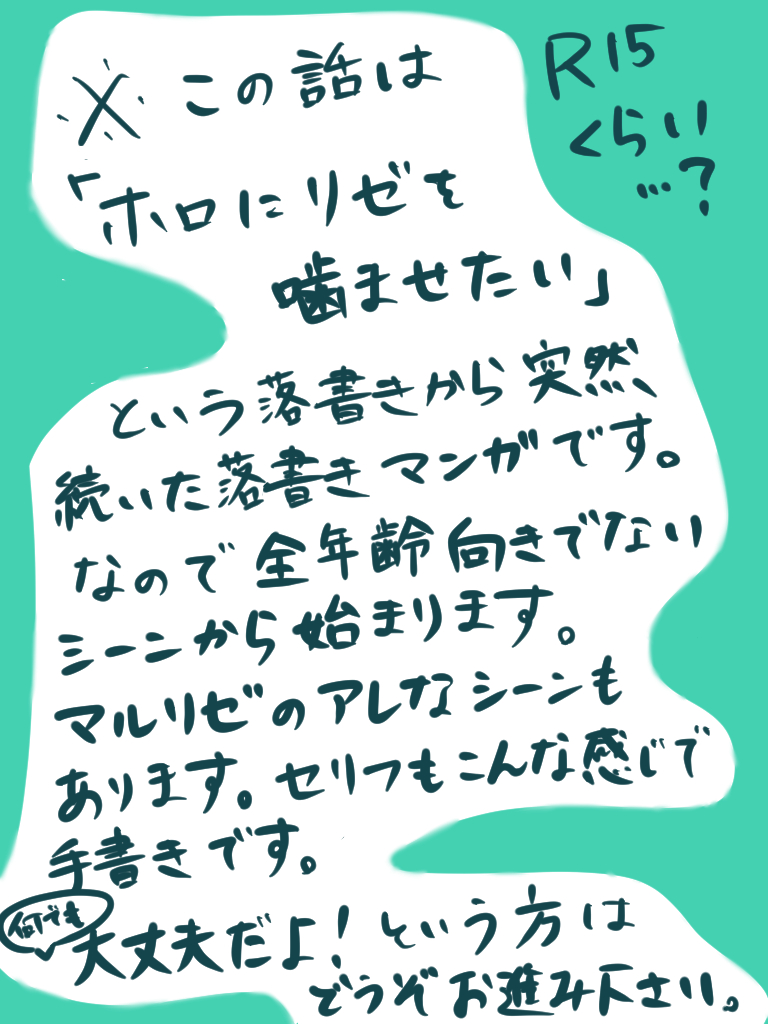 R15
くらい
…?
※この話は
「ホロにリゼを
噛ませたい」
という落書きから突然
続いた落書きマンガです。
なので全年齢向きでない
シーンから始まります。
マルリゼのアレなシーンも
あります。セリフもこんな感じで
手書きです。
何でも
大丈夫だよ!という方は
どうぞお進み下さい。